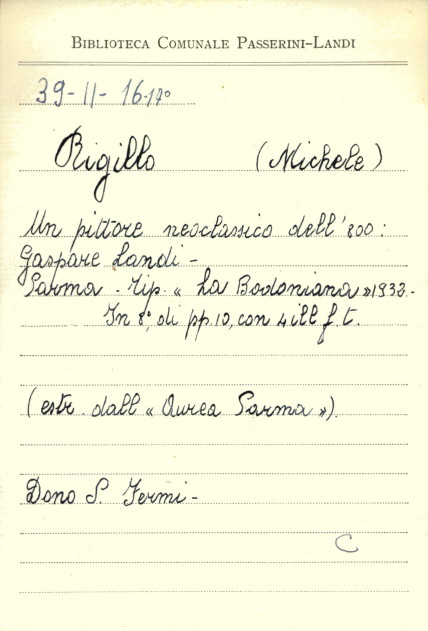 BIBLIOTECA COMUNALE PASSERINI-LANDI
39-II-16.17º
Rigillo (Michele)
Un pittore neoclassico dell'800:
Gaspare Landi -
Parma - Tip. « La Bodoniana » 1933 -
In 8º, di pp. 10, con 4 ill f. t.
(estr. dall « Aurea Parma »).
Dono S. Fermi -
C